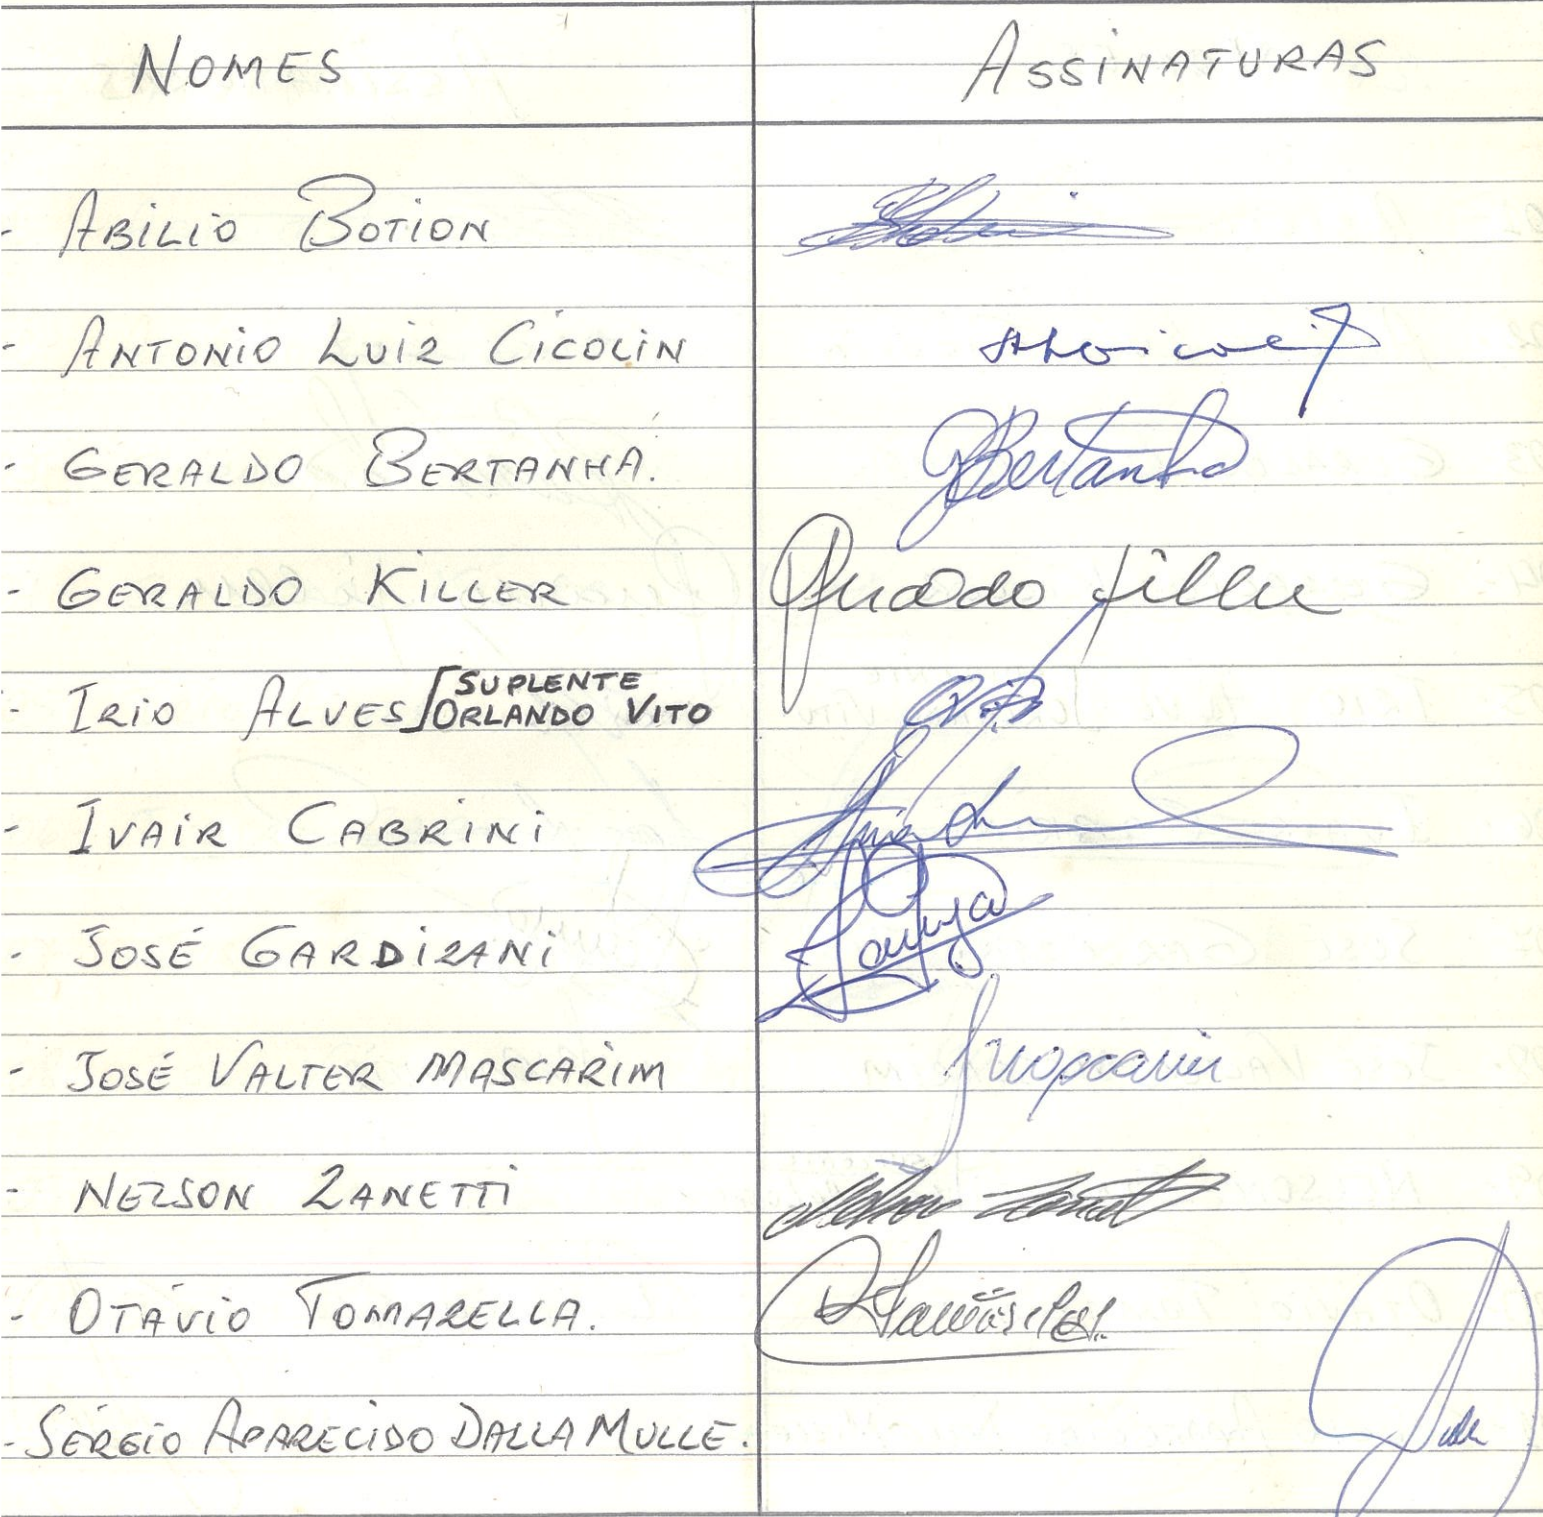 NOMES ASSINATURAS
- ABILIO BOTION
- ANTONIO LUIZ CICOLIN
- GERALDO BERTANHA. GBertanha
- GERALDO KILLER Geraldo Killer
- IRIO ALVES [SUPLENTE
ORLANDO VITO
- IVAIR CABRINI
- JOSÉ GARDIZANI
- JOSÉ VALTER MASCARIM
- NELSON ZANETTI Nelson Zanetti
- OTÁVIO TOMAZELLA.
- SÉRGIO APARECIDO DALLA MULLE.